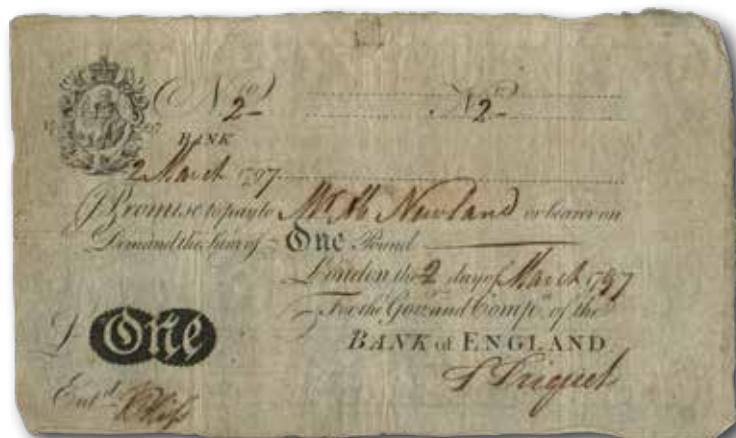 No 2 No 2
BANK
2 March 1797
I Promise to pay to Mr Ab Newland or bearer on
Demand the Sum of One Pound
London the 2 day of March 1797
For the Govr and Compa of the
BANK of ENGLAND
£ One
Entd